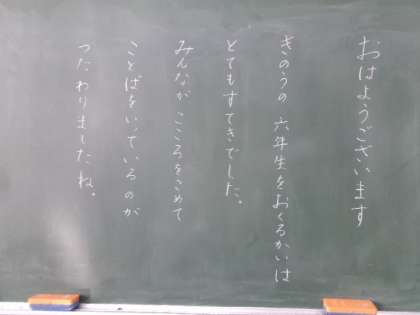 おはようございます
きのうの六年生をおくるかいは
とてもすてきでした。
みんなが こころをこめて
ことばをいっているのが
つたわりましたね。